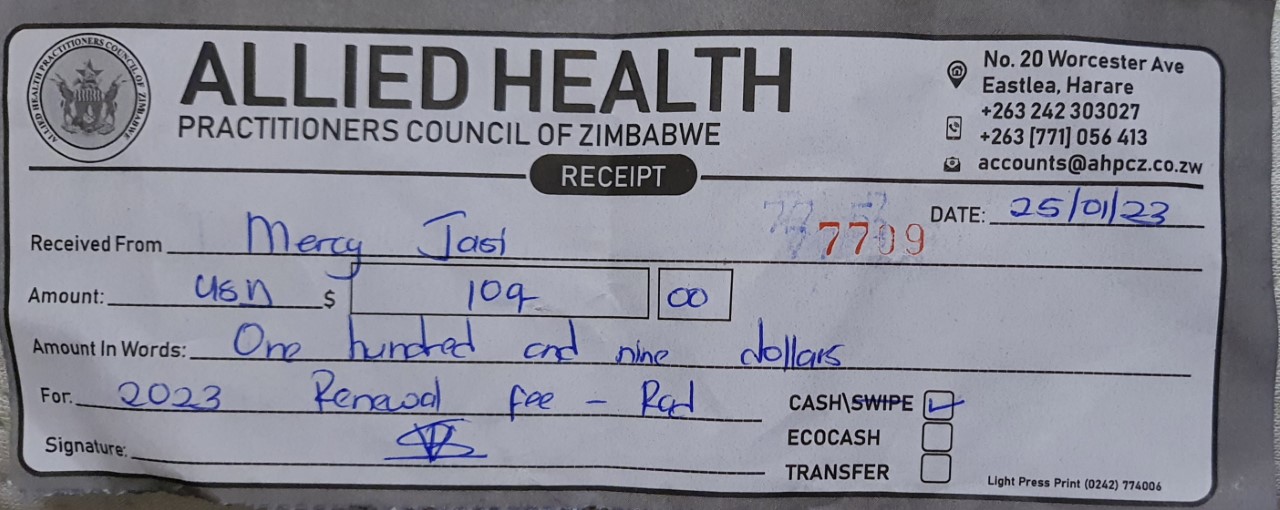 ALLIED HEALTH PRACTITIONERS COUNCIL OF ZIMBABWE
ALLIED HEALTH
PRACTITIONERS COUNCIL OF ZIMBABWE
No. 20 Worcester Ave
Eastlea, Harare
+263 242 303027
+263 [771] 056 413
accounts@ahpcz.co.zw
RECEIPT
7709
DATE: 25/01/23
Received From Mercy Jasi
Amount: usn $ 109 00
Amount In Words: One hundred and nine dollars
For: 2023 Renewal fee - Rad
Signature:
CASH\SWIPE
ECOCASH
TRANSFER
Light Press Print (0242) 774006